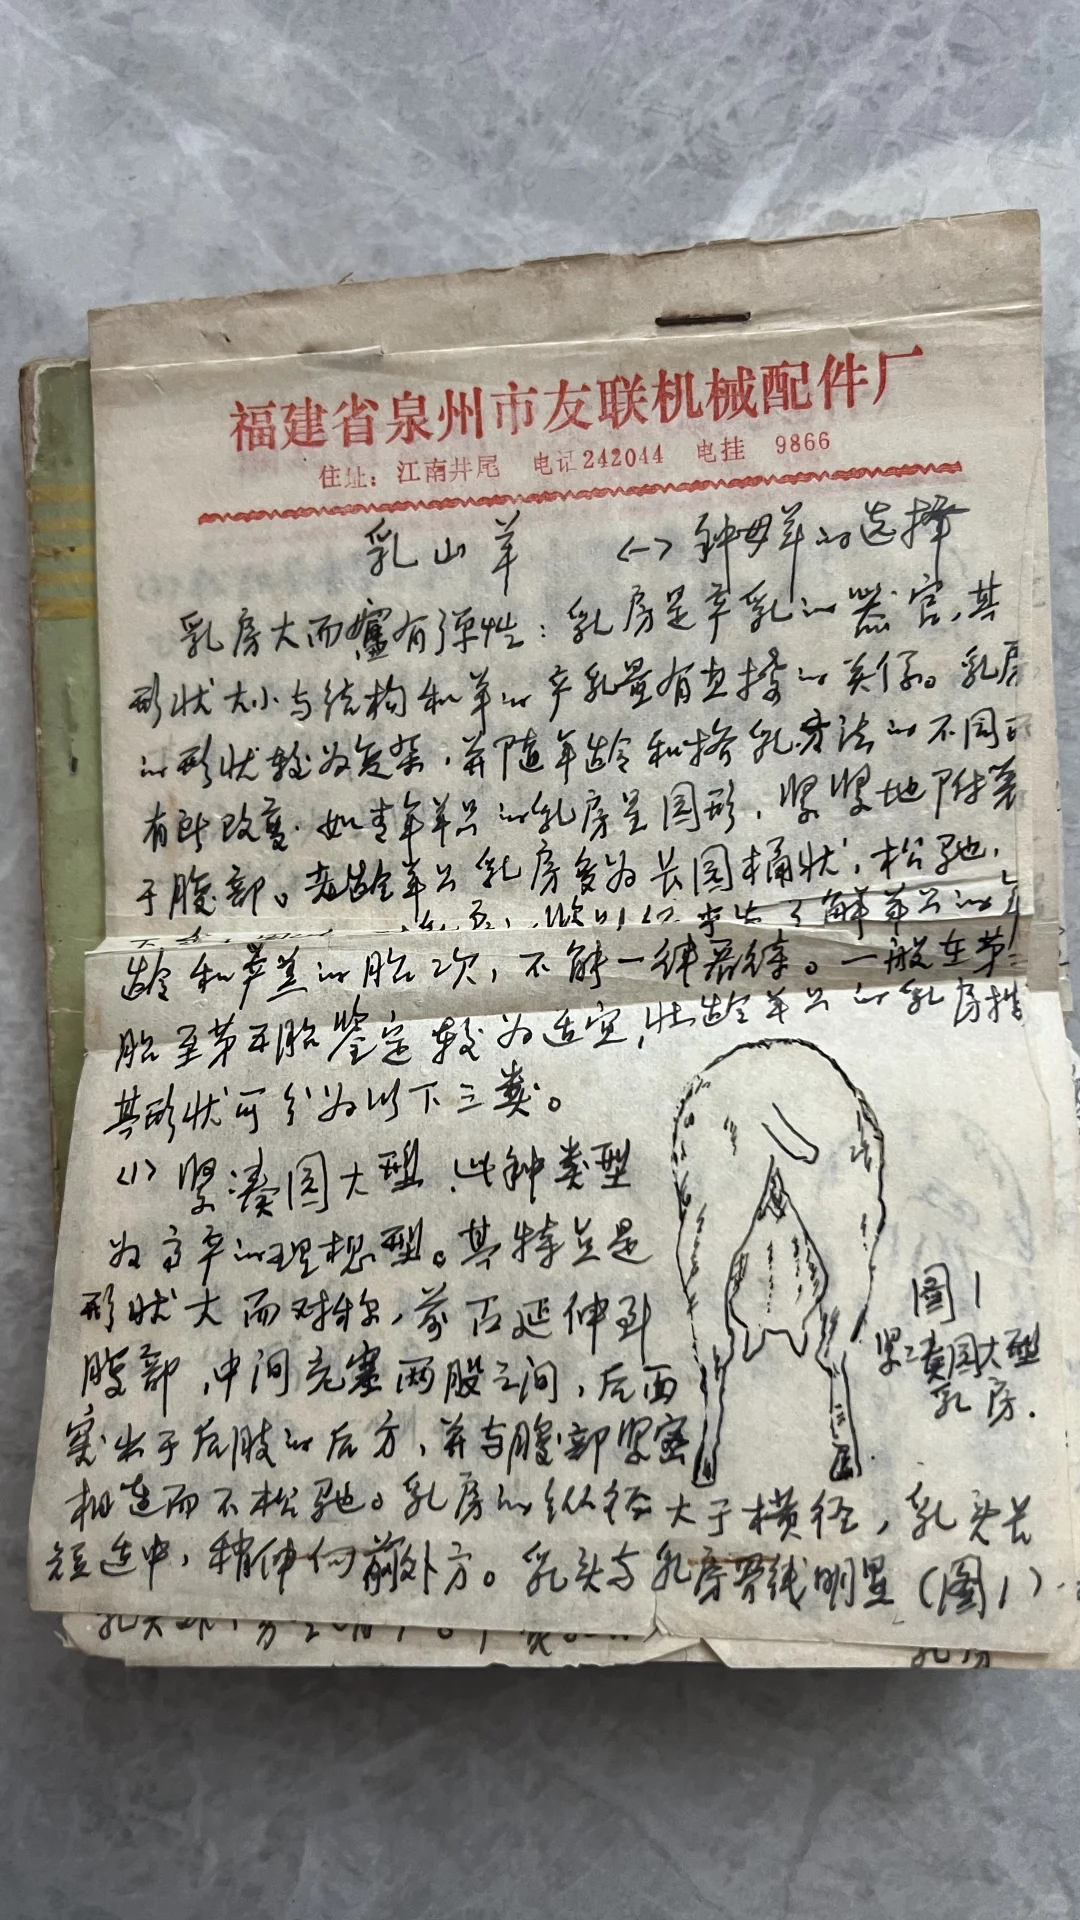 福建省泉州市友联机械配件厂
住址：江南井尾 电话242044 电挂 9866
乳山羊 （一）种母羊的选择
乳房大而富有弹性：乳房是产乳的器官，其
形状大小与结构和羊的产乳量有直接的关系。乳房
的形状较为复杂，并随年龄和挤乳方法的不同而
有所改变。如青年羊只的乳房呈圆形，紧紧地附着
于腹部。老龄羊只乳房多为长圆桶状，松弛，
了解羊只的年
龄和产羔的胎次，不能一律看待。一般在第三
胎至第五胎鉴定较为适宜，壮龄羊只的乳房按
其形状可分为以下三类。
（1）紧凑圆大型，此种类型
为高产的理想型。其特点是
形状大而对称，前面延伸到
腹部，中间充塞两股之间，后面
突出于后肢的后方，并与腹部紧密
相连而不松弛。乳房的纵径大于横径，乳头长
短适中，稍伸向前外方。乳头与乳房界线明显（图1）
图1
紧凑圆大型
乳房.